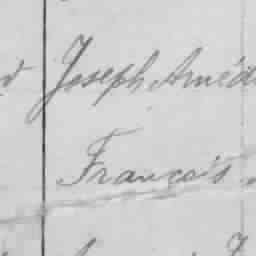 Joseph Amédé
François